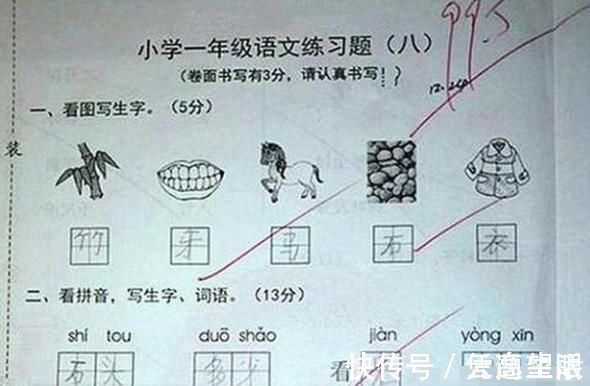 小学一年级语文练习题（八） 99.5
（卷面书写有3分，请认真书写！）
装
一、看图写生字。（5分）
竹 牙 马 石 衣
二、看拼音，写生字、词语。（13分）
shí tou duō shǎo jiàn yòng xīn
石头 多少 看
快传号／